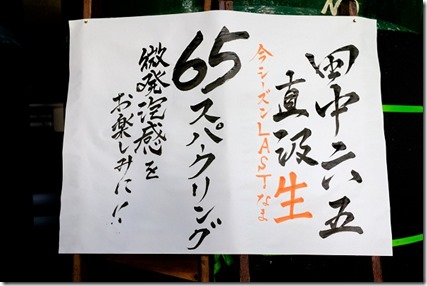 田中六五
直汲生
今シーズンLASTなま
65スパークリング
微発泡感を
お楽しみに!!